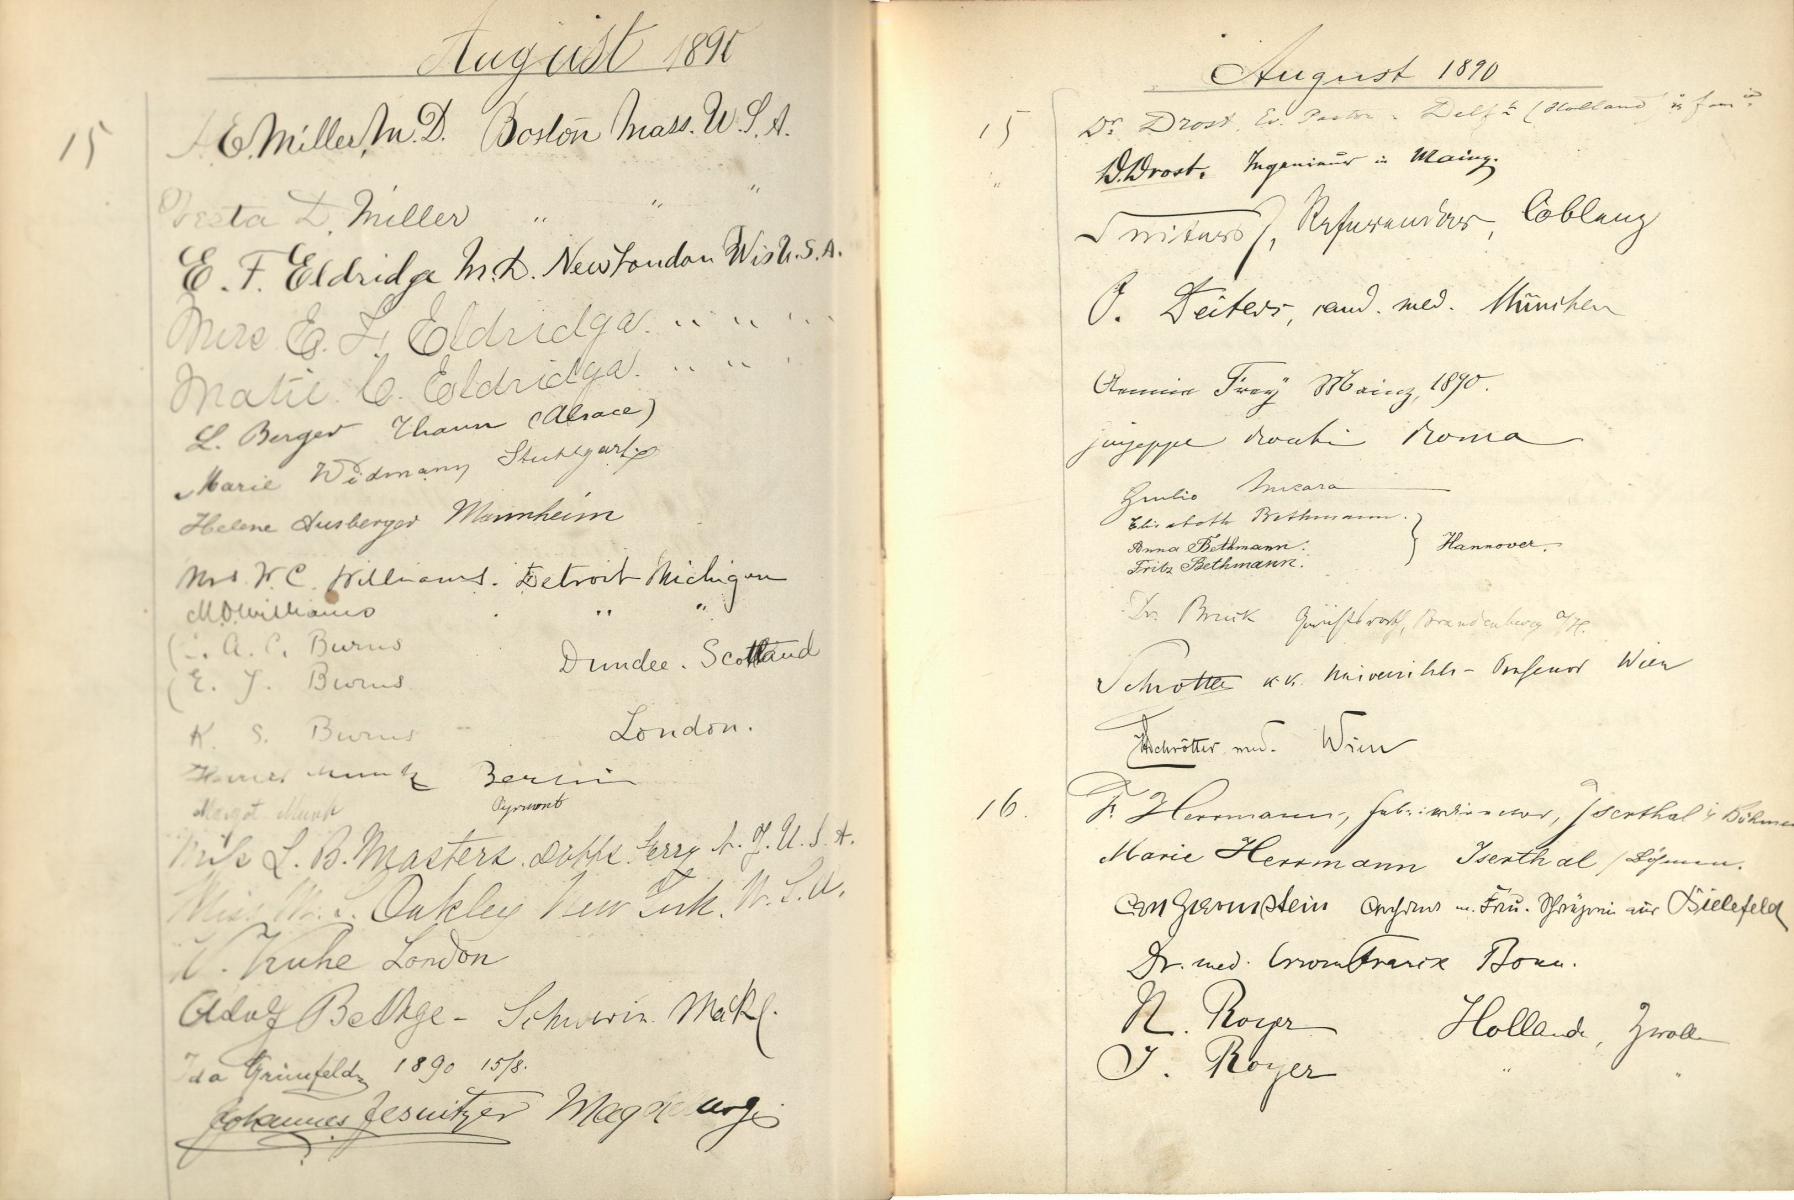 August 1890
15
A. E. Miller, M. D. Boston Mass. U. S. A.
Vesta D. Miller " " "
E. F. Eldridge M. D. New London Wis U. S. A.
Mrs E. F. Eldridge. " " "
Matie C. Eldridge. " " "
L. Berger Thann (Alsace)
Marie Widmann Stuttgart
Helene Ausberger Mannheim
Mrs. W. C. Williams. Detroit Michigan
M. D. Williams " "
A. C. Burns
Dundee. Scotland
E. J. Burns
K. S. Burns London.
Munk Berlin
Margot Munk Pyrmont
L. B. Masters. Dobbs Ferry N. Y. U. S. A.
Miss M. L. Oakley New York. U. S. A.
Kuhe London
Adolf Bethge - Schwerin Mekl.
Ida Grünfeld 1890 15/8.
Johannes Jesnitzer Magdeburg
August 1890
15
Dr. Drost, Ev. Pastor. Delft (Holland)
" D. Drost. Ingenieur in Mainz.
Referendar, Coblenz
O. Deiters, cand. med. München
Frey Mainz, 1890.
Roma
Giulio
Elisabeth Bethmann.
Anna Bethmann. } Hannover.
Fritz Bethmann.
Dr. Bruck Brandenburg a/H.
Schrötter k. k. Universitäts-Professor Wien
Schrötter med. Wien
16. F. Herrmann, Iserthal i/ Böhmen
Marie Herrmann Iserthal / Böhmen.
Bielefeld
Dr. med. Bonn.
N. Royer Hollande, Zwolle
J. Royer " "